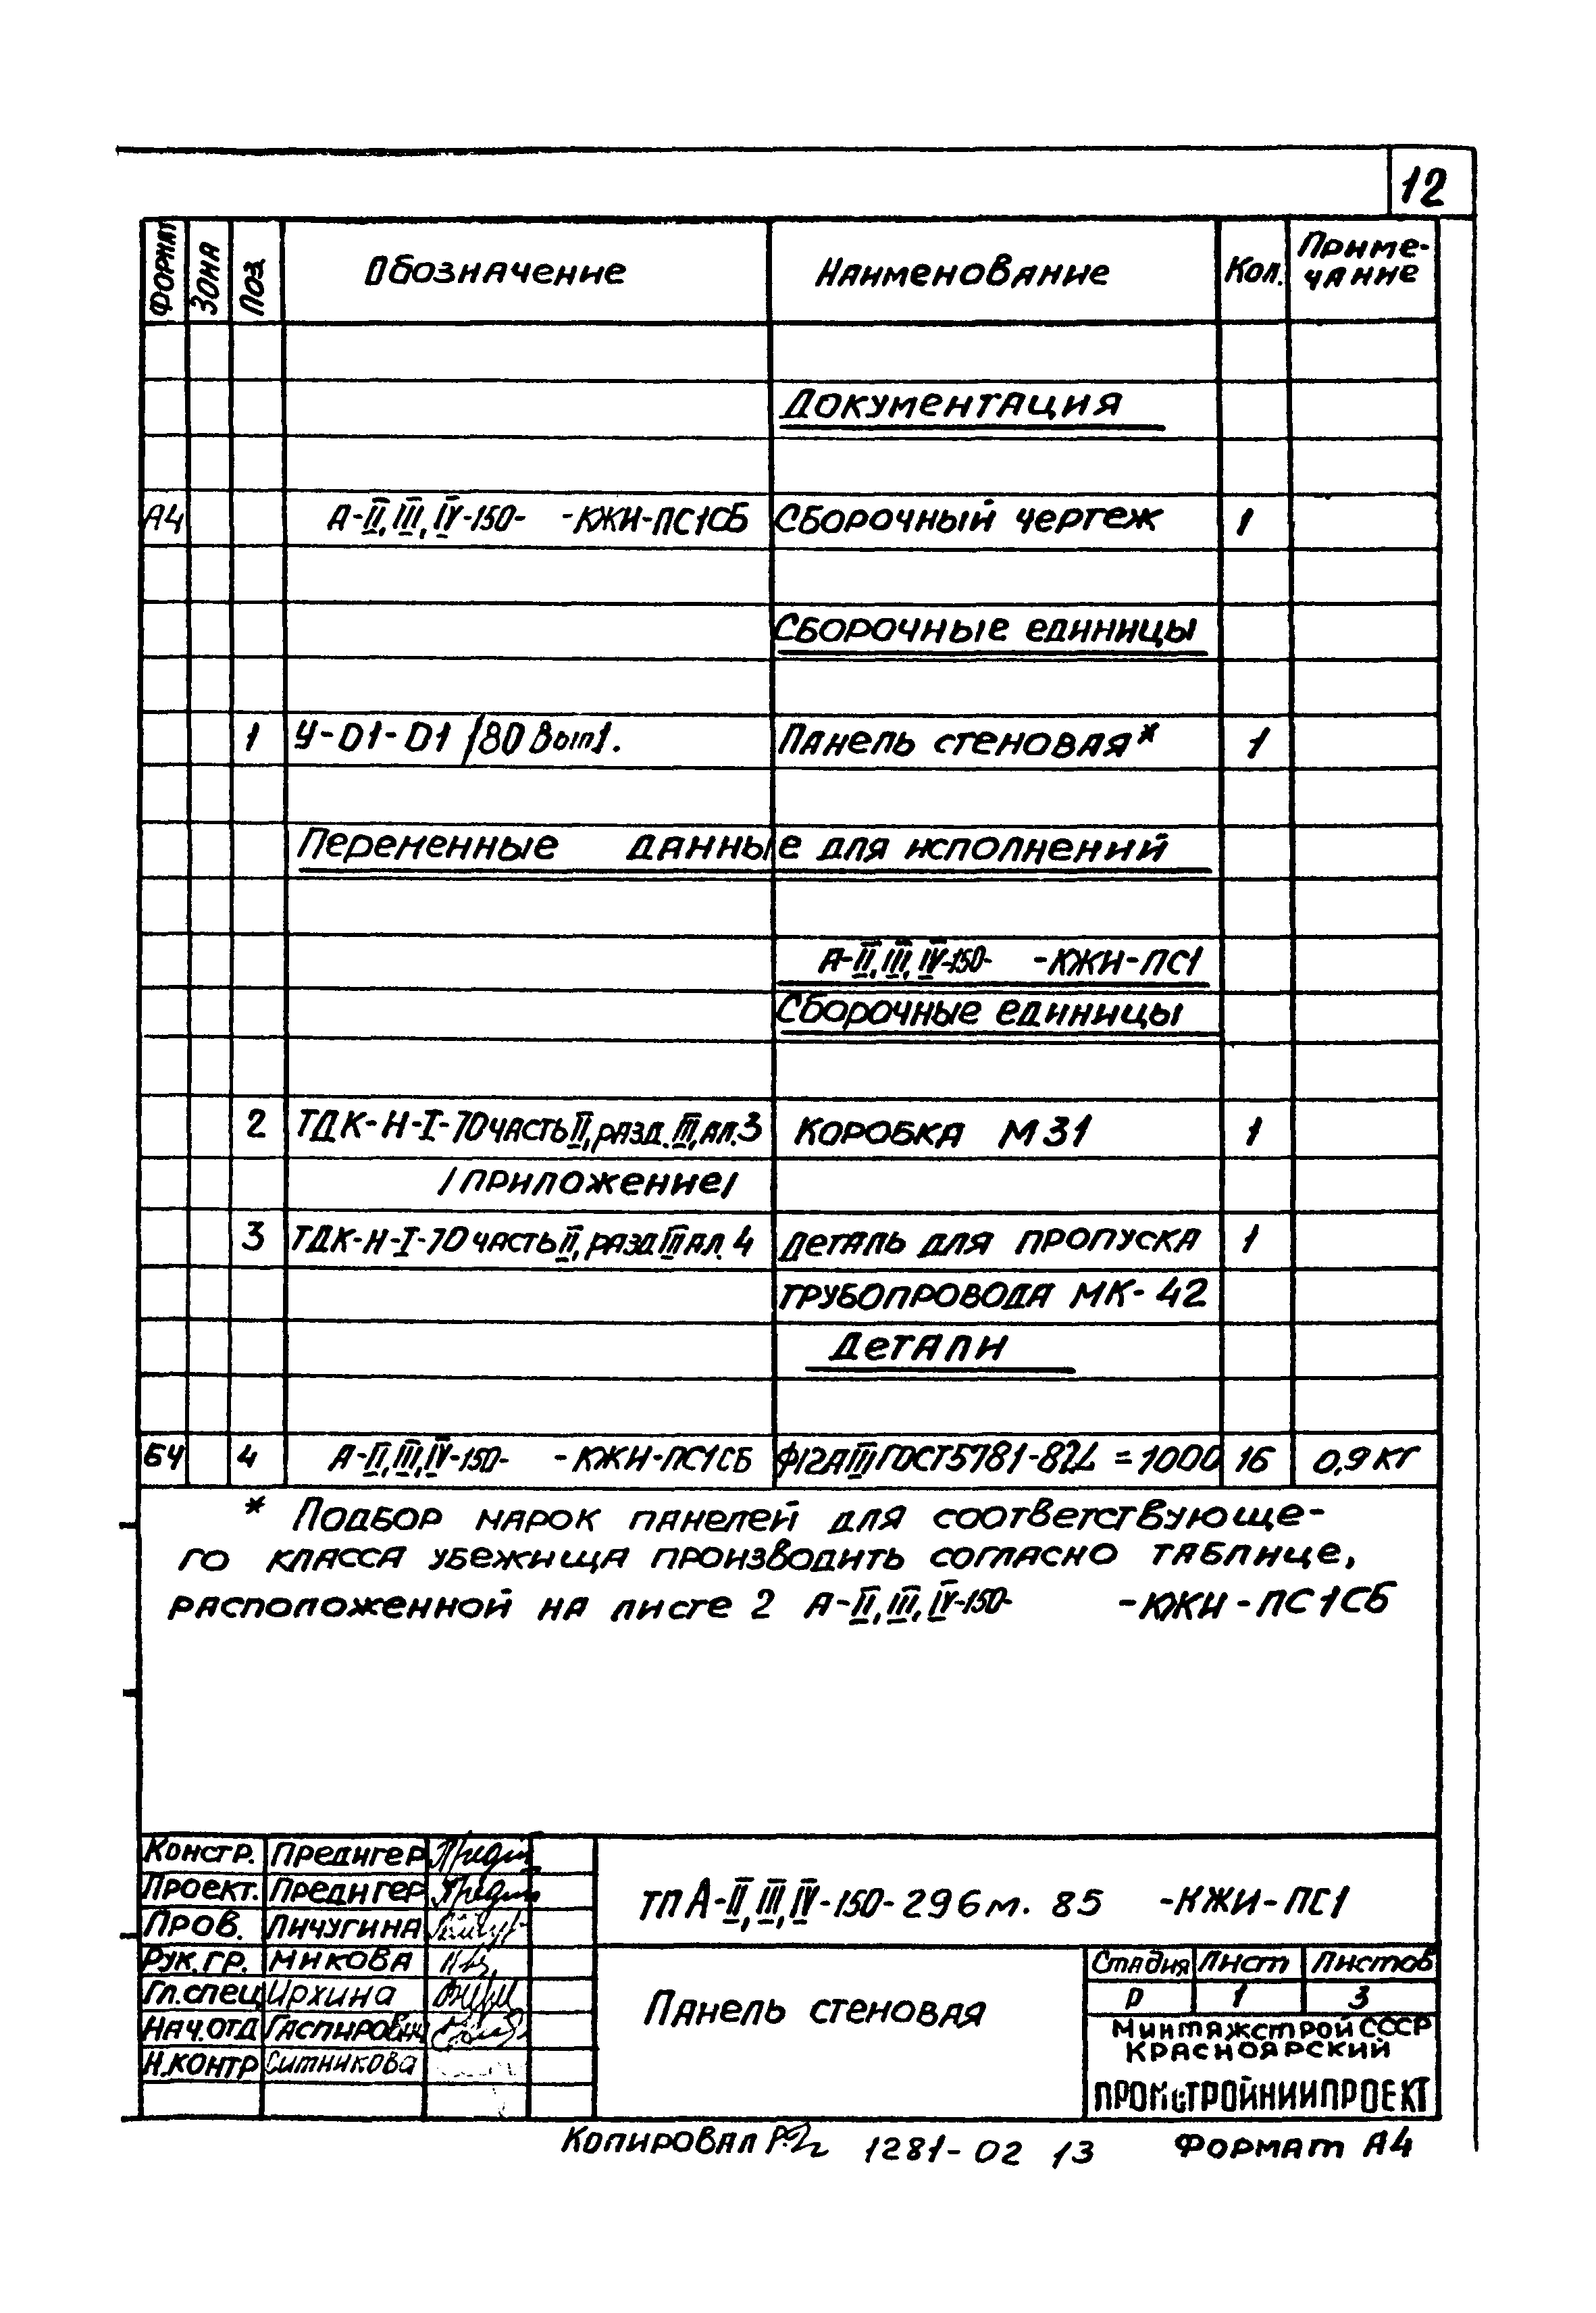 12
Формат Зона Поз. Обозначение Наименование Кол. Приме-
чание
Документация
А4 А-II, III, IV-150- -КЖИ-ПС1СБ Сборочный чертеж 1
Сборочные единицы
1 У-01-01/80 Вып1. Панель стеновая* 1
Переменные данные для исполнений
А-II, III, IV-150- -КЖИ-ПС1
Сборочные единицы
2 ТДК-Н-I-70 часть II, разд. III, ал.3 Коробка М31 1
/приложение/
3 ТДК-Н-I-70 часть II, разд III ал. 4 Деталь для пропуска 1
трубопровода МК-42
Детали
БЧ 4 А-II, III, IV-150- -КЖИ-ПС1СБ Ф12АIII ГОСТ5781-82 L=1000 16 0,9 кг
* Подбор марок панелей для соответствующе-
го класса убежища производить согласно таблице,
расположенной на листе 2 А-II, III, IV-150- -КЖИ-ПС1СБ
Констр. Предигер
Проект. Предигер
Пров. Личугина
Рук. гр. Микова
Гл. спец Ирхина
Нач. отд Гаспирович
Н. контр Ситникова
ТП А-II, III, IV-150-296м. 85 -КЖИ-ПС1
Панель стеновая
Стадия Лист Листов
Р 1 3
Минтяжстрой СССР
Красноярский
ПРОМСТРОЙНИИПРОЕКТ
Копировал 1281-02 13 Формат А4